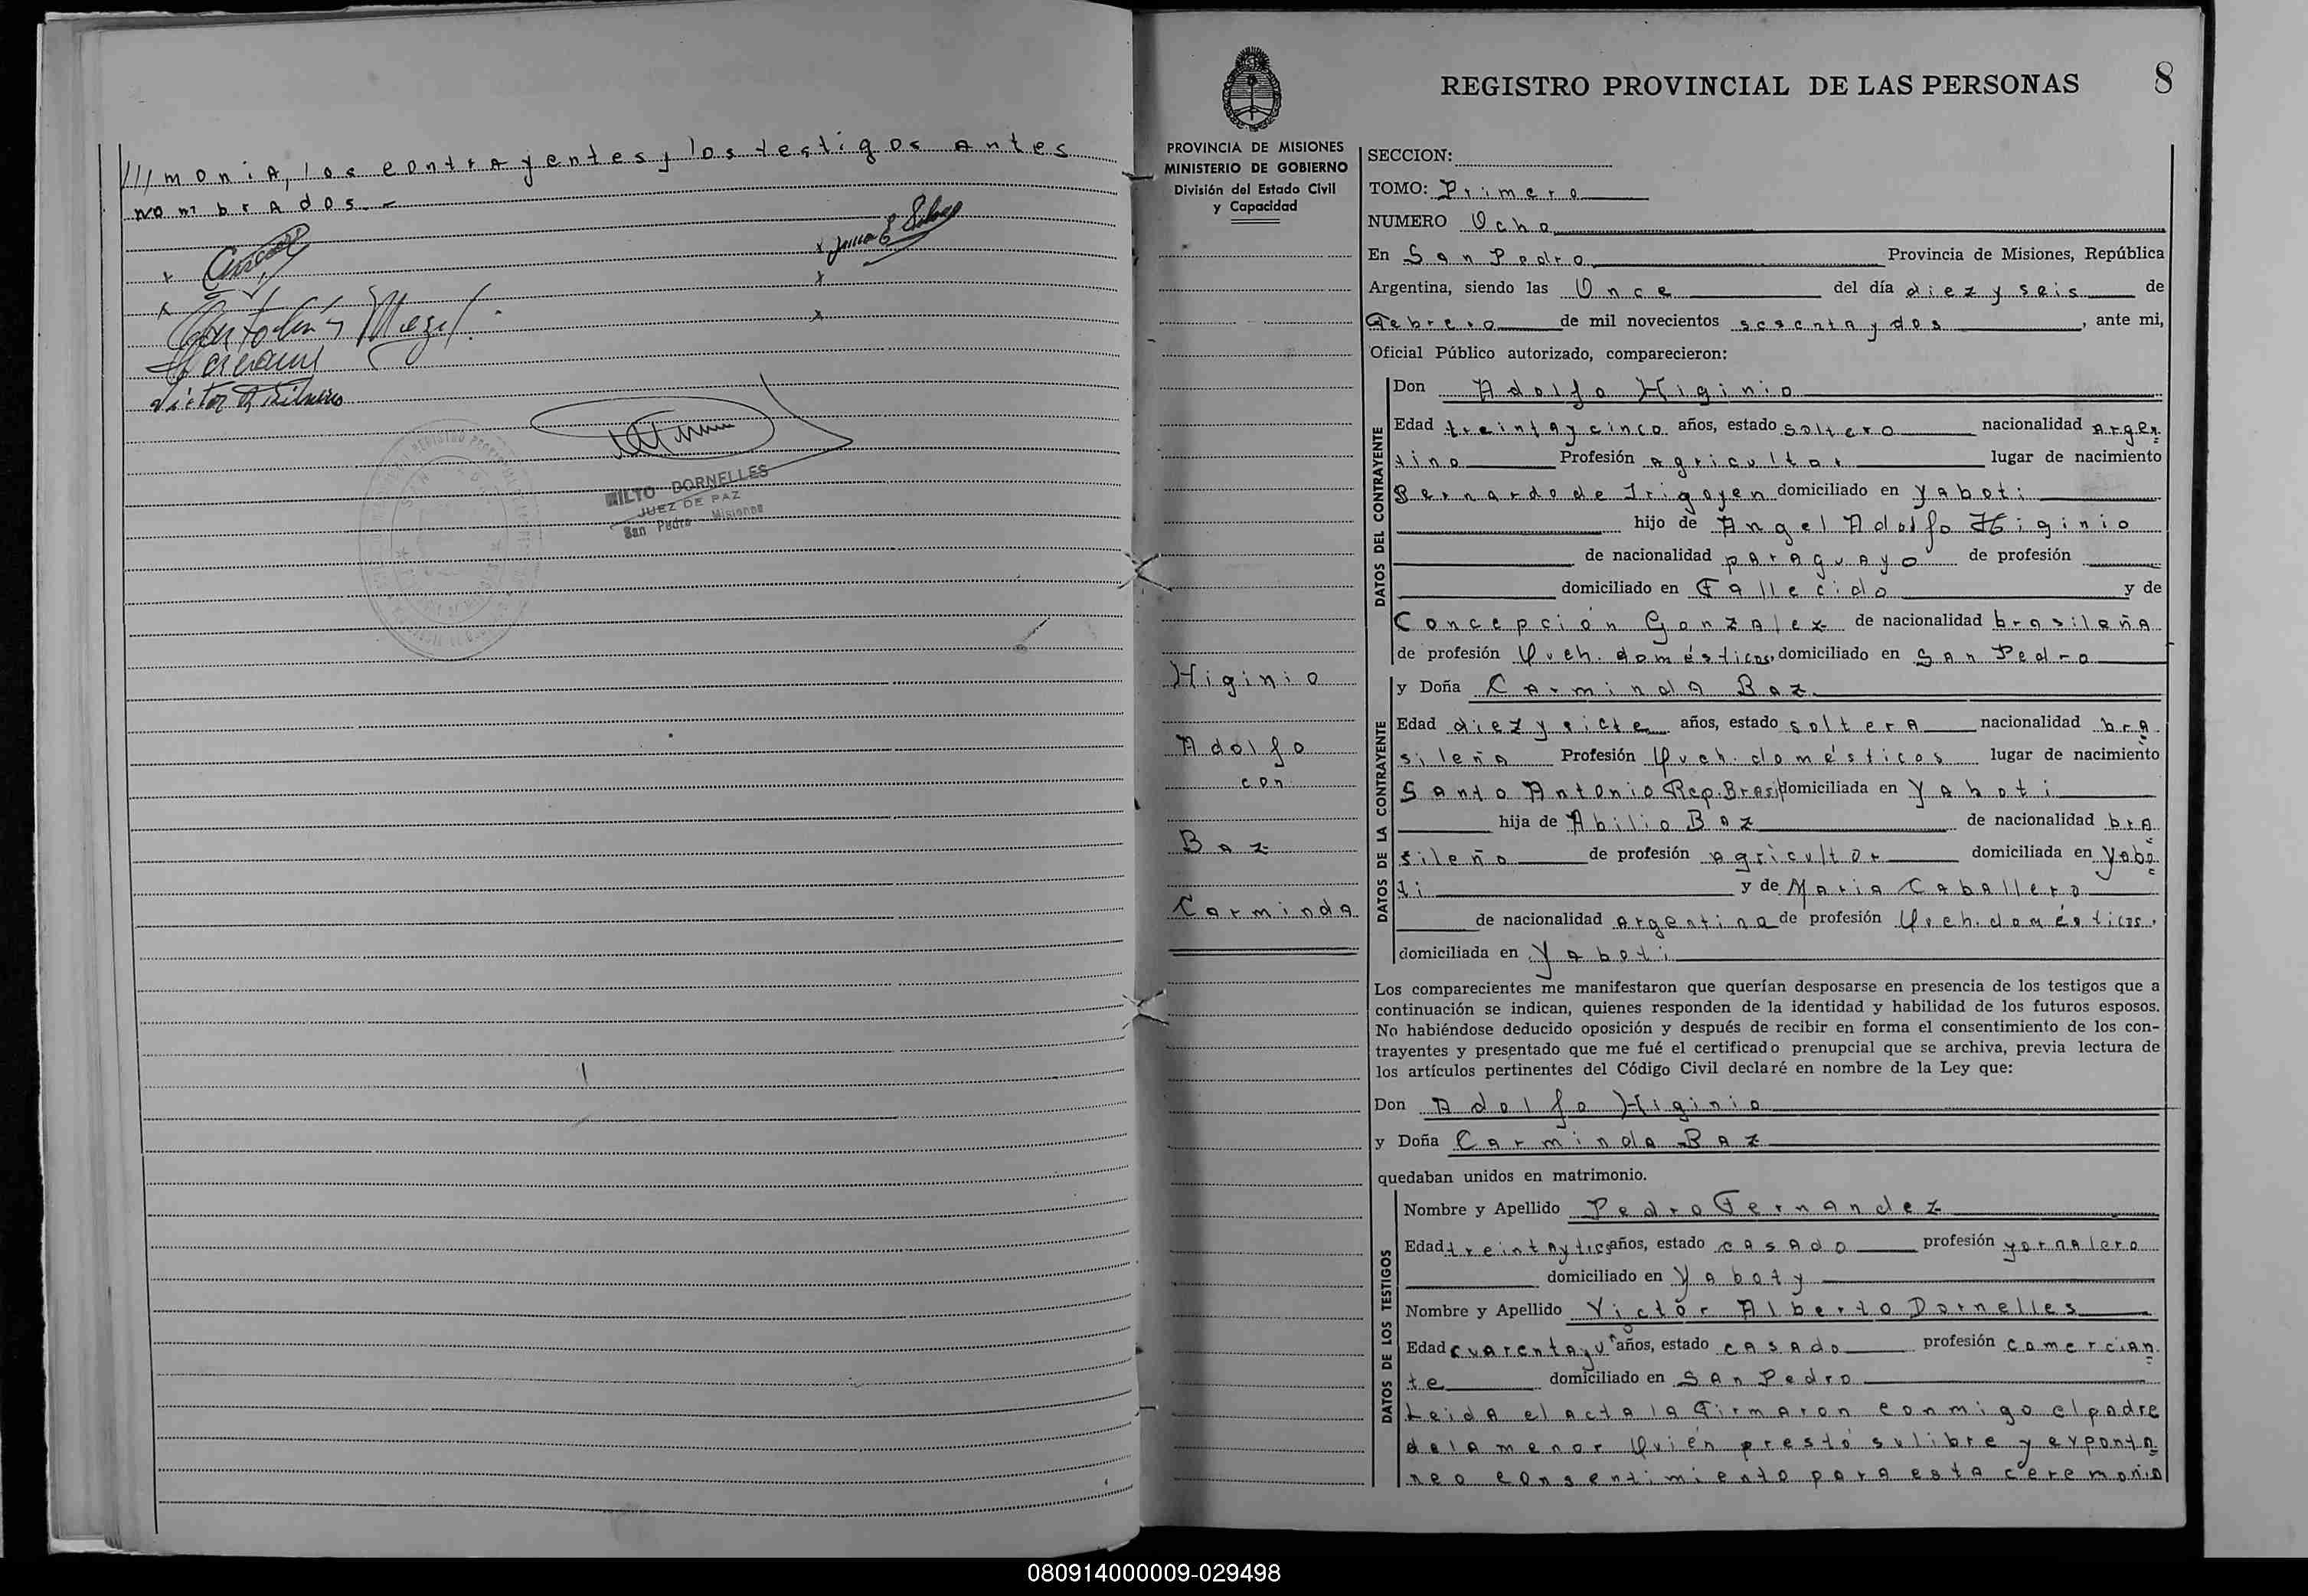 ///monia, los contrayentes y los testigos antes
nombrados.-
MILTO DORNELLES
JUEZ DE PAZ
San Pedro - Misiones
REGISTRO PROVINCIAL DE LAS PERSONAS
8
PROVINCIA DE MISIONES
MINISTERIO DE GOBIERNO
División del Estado Civil
y Capacidad
Higinio
Adolfo
con
Baz
Carminda
SECCION:
TOMO: Primero
NUMERO Ocho
En San Pedro Provincia de Misiones, República
Argentina, siendo las Once del día diez y seis de
Febrero de mil novecientos sesenta y dos, ante mi,
Oficial Público autorizado, comparecieron:
DATOS DEL CONTRAYENTE
Don Adolfo Higinio
Edad treinta y cinco años, estado soltero nacionalidad Argen
tino Profesión agricultor lugar de nacimiento
Bernardo de Irigoyen domiciliado en Yaboti
hijo de Angel Adolfo Higinio
de nacionalidad paraguayo de profesión
domiciliado en Fallecido y de
Concepción Gonzalez de nacionalidad brasileña
de profesión Queh. domésticos, domiciliado en San Pedro
DATOS DE LA CONTRAYENTE
y Doña Carminda Baz
Edad diez y siete años, estado soltera nacionalidad bra
sileña Profesión Queh. domésticos lugar de nacimiento
Santo Antonio Rep. Brasil domiciliada en Yaboti
hija de Abilio Baz de nacionalidad bra
sileño de profesión agricultor domiciliada en Yabo
ti y de Maria Caballero
de nacionalidad Argentina de profesión Queh. domésticos.
domiciliada en Yaboti
Los comparecientes me manifestaron que querían desposarse en presencia de los testigos que a
continuación se indican, quienes responden de la identidad y habilidad de los futuros esposos.
No habiéndose deducido oposición y después de recibir en forma el consentimiento de los con-
trayentes y presentado que me fué el certificado prenupcial que se archiva, previa lectura de
los artículos pertinentes del Código Civil declaré en nombre de la Ley que:
Don Adolfo Higinio
y Doña Carminda Baz
quedaban unidos en matrimonio.
DATOS DE LOS TESTIGOS
Nombre y Apellido Pedro Fernandez
Edad treinta y tres años, estado casado profesión yornalero
domiciliado en Yaboty
Nombre y Apellido Victor Alberto Dornelles
Edad cuarenta y años, estado casado profesión comercian
te domiciliado en San Pedro
Leida el acta la Firmaron conmigo el padre
de la menor Quién prestó su libre y exponta
neo consentimiento para esta ceremonia
080914000009-029498